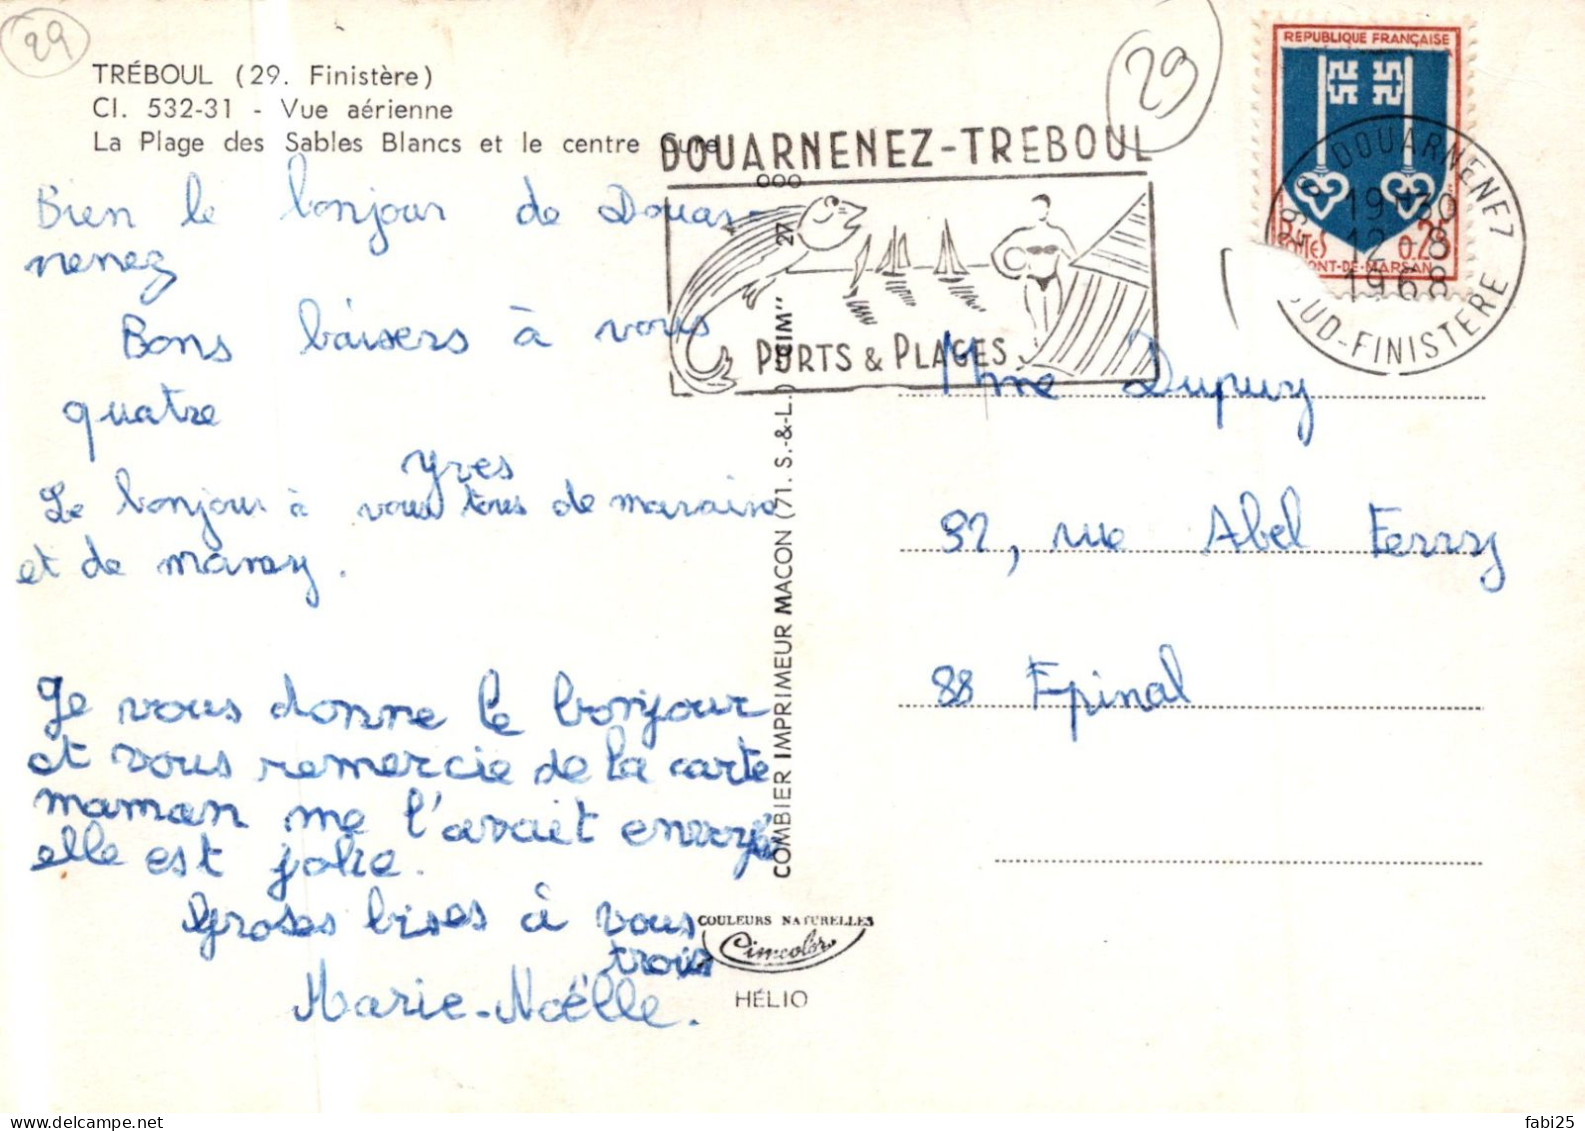 29
TRÉBOUL (29. Finistère)
Cl. 532-31 - Vue aérienne
La Plage des Sables Blancs et le centre Cure
Bien le bonjour de Douar-
nenez
Bons baisers à vous
quatre
Yves
Le bonjour à vous tous de
et de
Je vous donne le bonjour
et vous remercie de la carte
maman me l'avait envoyé
elle est jolie.
Groses bises à vous
trois
Marie-Noëlle.
29
DOUARNENEZ-TREBOUL
PORTS & PLAGES
COMBIER IMPRIMEUR MACON (71. S.-&-L.)
COULEURS NATURELLES
Cimcolor
HÉLIO
REPUBLIQUE FRANÇAISE
0.25
POSTES
MONT-DE-MARSAN
29 DOUARNENEZ
19H30
12-8
1968
SUD-FINISTERE
Mme Dupuy
92, rue Abel Ferry
88 Epinal
www.delcampe.net
fabi25